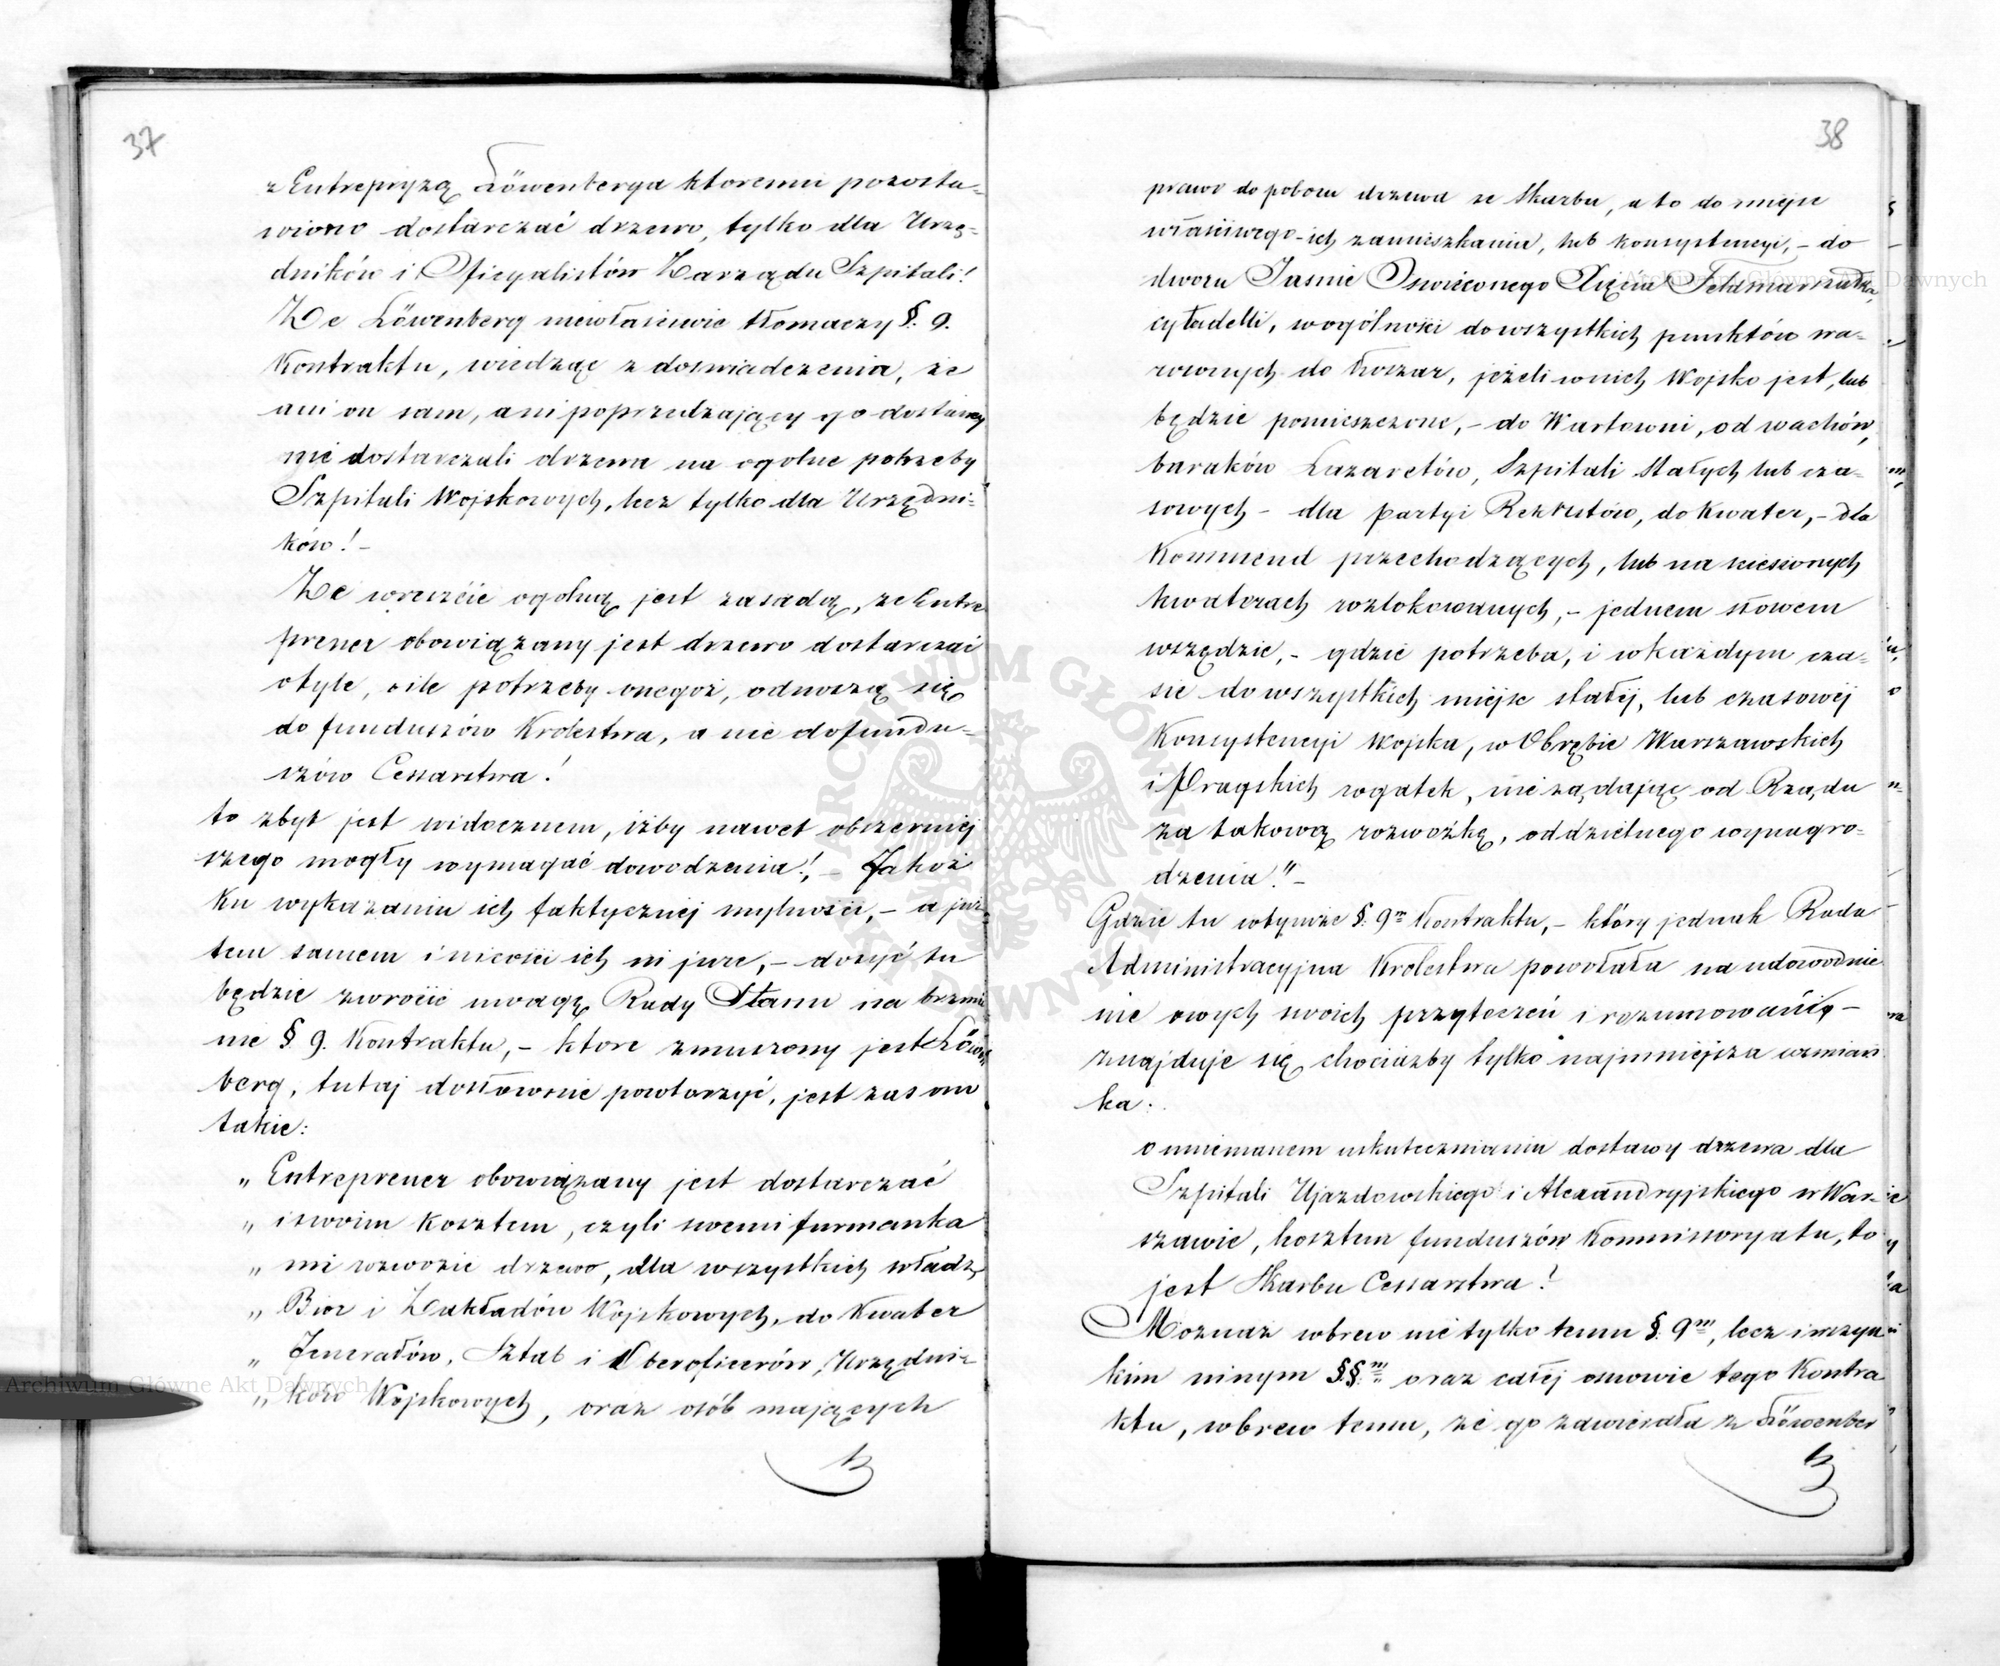 37
z Entrepryzą Löwenberga ktoremu pozosta-
wiono dostarczać drzewo, tylko dla Urzę-
dników i Oficyalistów Zarządu Szpitali!
Ze Löwenberg niewłaściwie tłomaczy §. 9.
Kontraktu, wiedząc z doswiadczenia, że
ani on sam, ani poprzedzający go dostawcy
nie dostarczali drzewa na ogolne potrzeby
Szpitali Wojskowych, lecz tylko dla Urzędni-
ków! -
Ze wreszcie ogolną jest zasadą, że Entre
prener obowiązany jest drzewo dostarczać
otyle, oile potrzeby onegoż, odnoszą się
do funduszów Krolestwa, a nie do fundu-
szów Cessarstwa!
to zbyt jest widocznem, iżby nawet obszerniej
szego mogły wymagać dowodzenia! - Jakoż
Ku wykazaniu ich faktycznéj mylności, - a już
tem samem i nicości ich in jure, - dosyć tu
będzie zwrocić uwagę Rady Stanu na brzmie
nie § 9. Kontraktu, - ktore zmuszony jest Löwen
berg, tutaj dosłownie powtorzyć, jest zas ono
takie:
„ Entreprener obowiązany jest dostarczać
„ i swoim Kosztem, czyli swemi furmanka
„ mi rozwozić drzewo, dla wszystkich władz,
„ Bior i Zakładów Wojskowych, do Kwater
„ Jenerałów, Sztab i Oberoficerów, Urzędni-
„ ków Wojskowych, oraz osób mających
38
prawo do poboru drzewa ze Skarbu, a to do miejsc
właściwego ich zamieszkania, lub konsystencyi, - do
dworu Jasnie Oswieconego Xięcia Feldmarszałka,
cytadelli, wogólności do wszystkich punktów wa-
rownych do Koszar, jeżeli w nich Wojsko jest, lub
będzie pomieszczone, - do Wartowni, odwachów,
baraków Lazaretów, Szpitali Stałych lub cza-
sowych - dla Partyi Rekrutów, do Kwater, - dla
Kommend przechodzących, lub na zimowych
kwaterach rozlokowanych, - jednem słowem
wszędzie, - gdzie potrzeba, i w każdym cza-
sie do wszystkich miejsc stałéj, lub czasowéj
Konsystencyi Wojska, w Obrębie Warszawskich
i Pragskich rogatek, nie żądając od Rządu
za takową rozwózkę, oddzielnego wynagro-
dzenia!" -
Gdzie tu w tymże § 9m Kontraktu, - który jednak Rada
Administracyjna Krolestwa powołała na udowodnie
nie owych swoich przytoczeń i rozumowań, -
znajduje się chociażby tylko najmniejsza wzmian
ka:
o mniemanem uskutecznianiu dostawy drzewa dla
Szpitali Ujazdowskiego i Alexandryjskiego w War-
szawie, kosztem funduszów Kommissoryatu, to
jest Skarbu Cessarstwa?
Moznaż wbrew nie tylko temu § 9m, lecz i wszyst
kim innym §§m oraz całéj osnowie tego Kontra
ktu, wbrew temu, że go zawierała z Löwenber